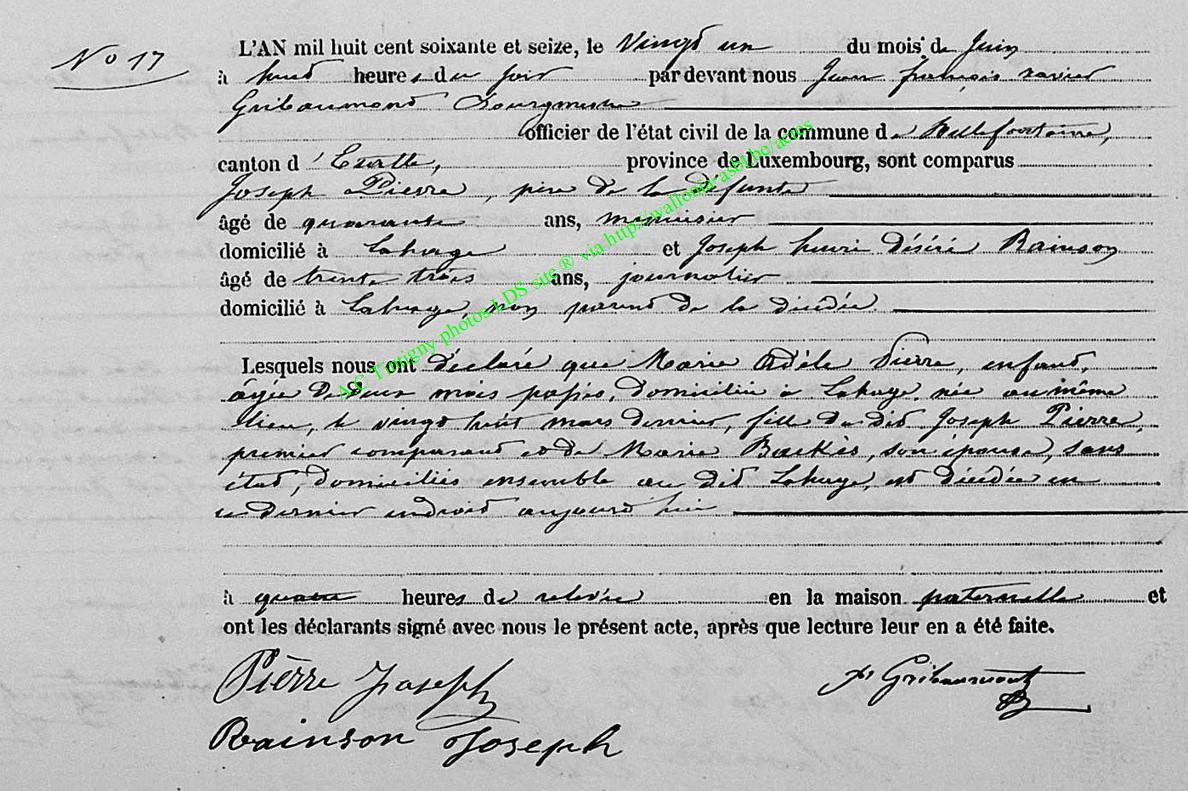 No 17
L'AN mil huit cent soixante et seize, le Vingt un du mois de Juin
à huit heures du soir par devant nous Jean françois xavier
Gribaumont Bourgmestre
officier de l'état civil de la commune de Bellefontaine,
canton d'Etalle, province de Luxembourg, sont comparus
Joseph Pierre, père de la défunte
âgé de quarante ans, menuisier
domicilié à Lahage et Joseph henri Désiré Rainson
âgé de trente trois ans, journalier
domicilié à Lahage, non parent de la décédée.
Lesquels nous ont déclaré que Marie Adèle Pierre, enfant,
âgée de deux mois passés, domiciliée à Lahage, née au même
lieu, le vingt huit mars dernier, fille du dit Joseph Pierre,
premier comparant et de Marie Backès, son épouse, sans
état, domiciliés ensemble au dit Lahage, est décédée en
ce dernier endroit aujourd'hui
à quatre heures de relevée en la maison paternelle et
ont les déclarants signé avec nous le présent acte, après que lecture leur en a été faite.
Pièrre Joseph
Gribaumont
Rainson Joseph
A.C Tintigny photos LDS site ® via http://wallonia.asbl.be/actes